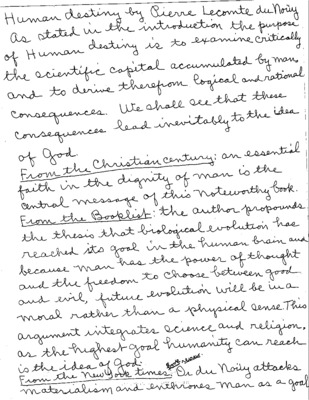 Human destiny by Pierre Lecomte du Noüy
As stated in the introduction the purpose
of Human destiny is to examine critically
the scientific capital accumulated by man,
and to derive therefrom logical and rational
consequences. We shall see that these
consequences lead inevitably to the idea
of God
From the Christian century: an essential
faith in the dignity of man is the
central message of this noteworthy book.
From the Booklist: the author propounds
the thesis that biological evolution has
reached its goal in the human brain and
because man has the power of thought
and the freedom to choose between good
and evil, future evolution will be in a
moral rather than a physical sense This
argument integrates science and religion,
as the highest goal humanity can reach
is the idea of God.
From the New York times Dr du Noüy attacks
materialism and enthrones man as a goal